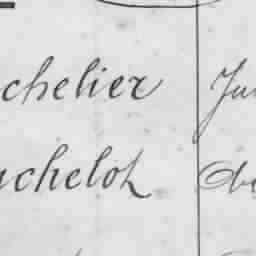 chelier Ju
uchelot